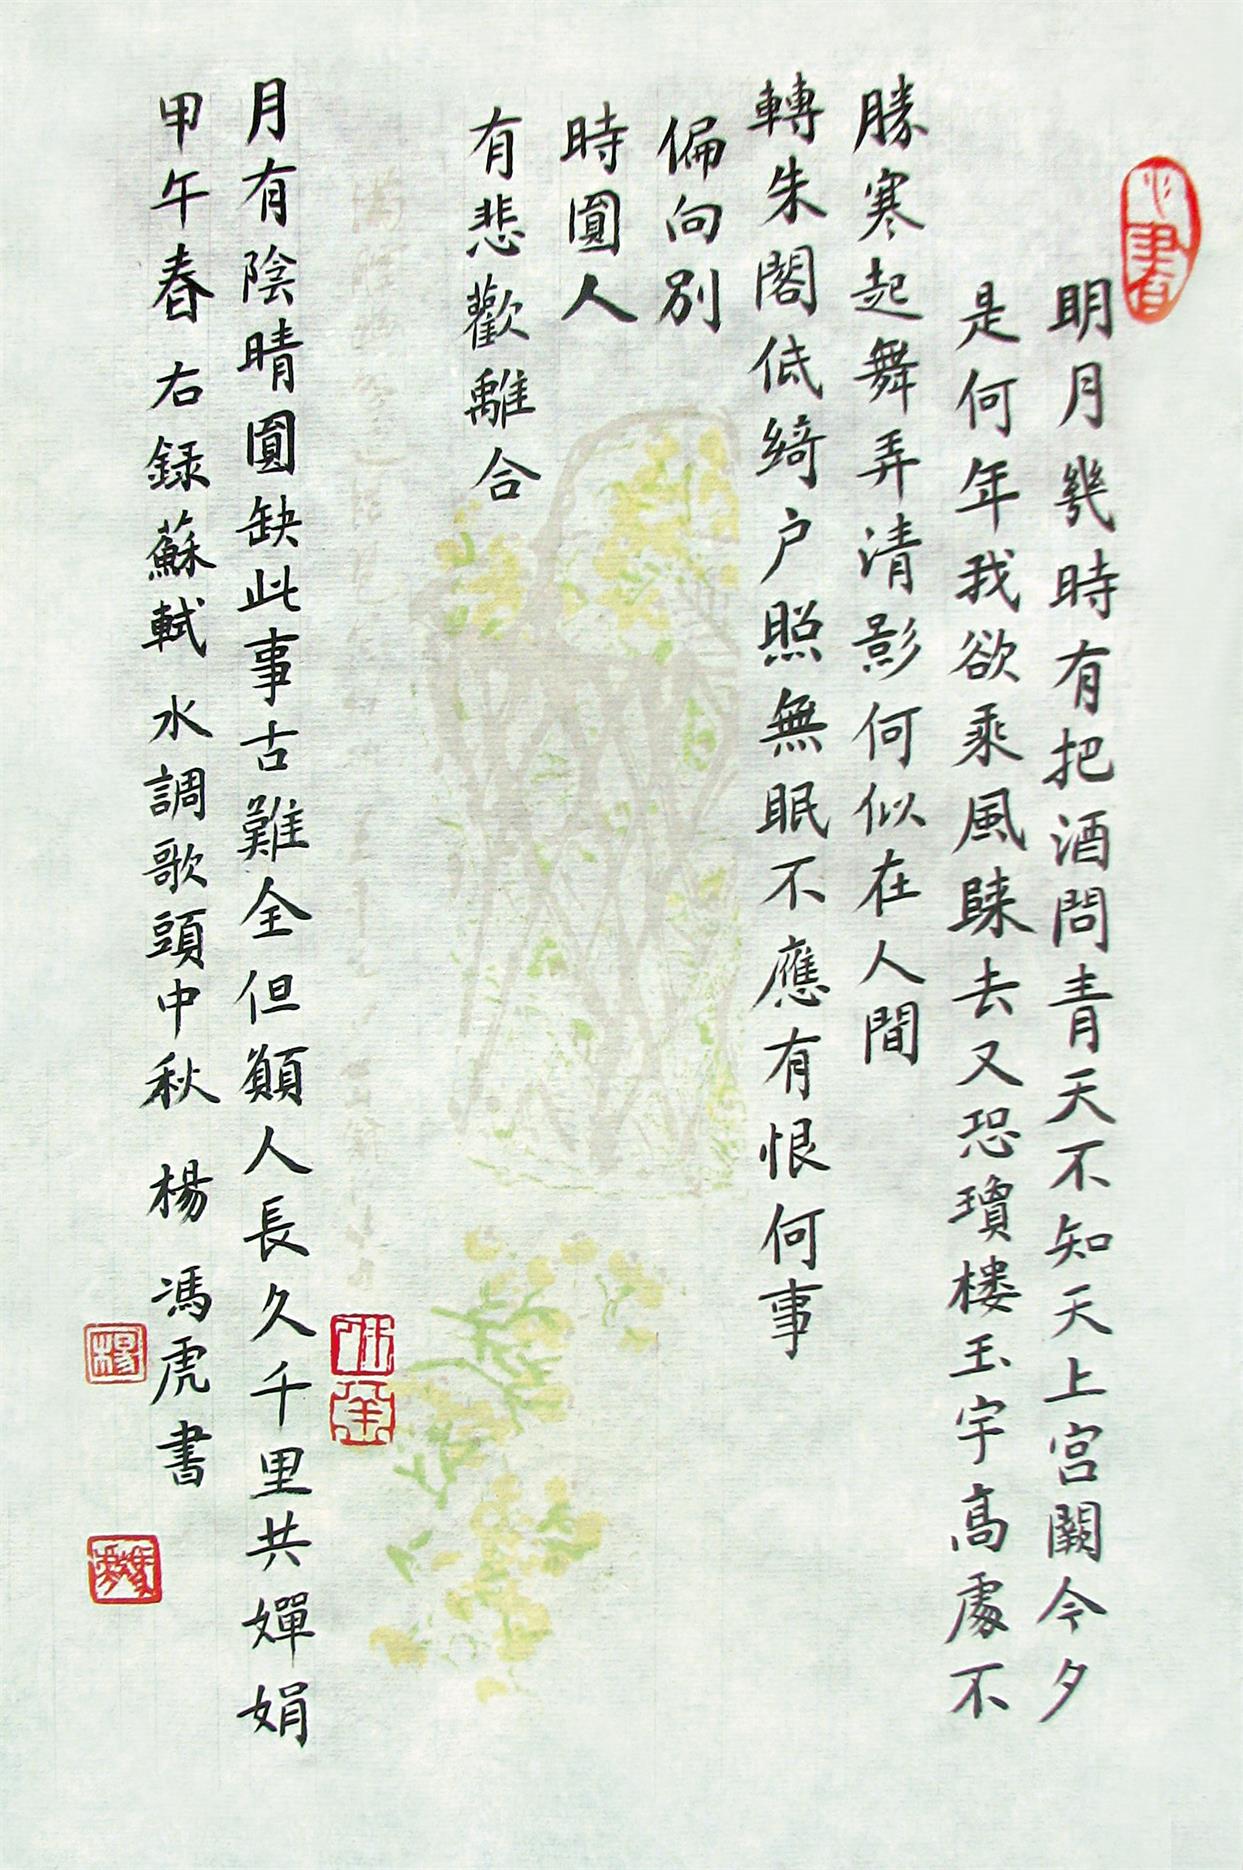 明月幾時有把酒問青天不知天上宮闕今夕
是何年我欲乘風歸去又恐瓊楼玉宇高處不
勝寒起舞弄清影何似在人間
轉朱閣低綺户照無眠不應有恨何事
偏向別
時圓人
有悲歡離合
月有陰晴圓缺此事古難全但願人長久千里共嬋娟
甲午春 右録蘇軾 水調歌頭中秋 楊 馮虎書
楊